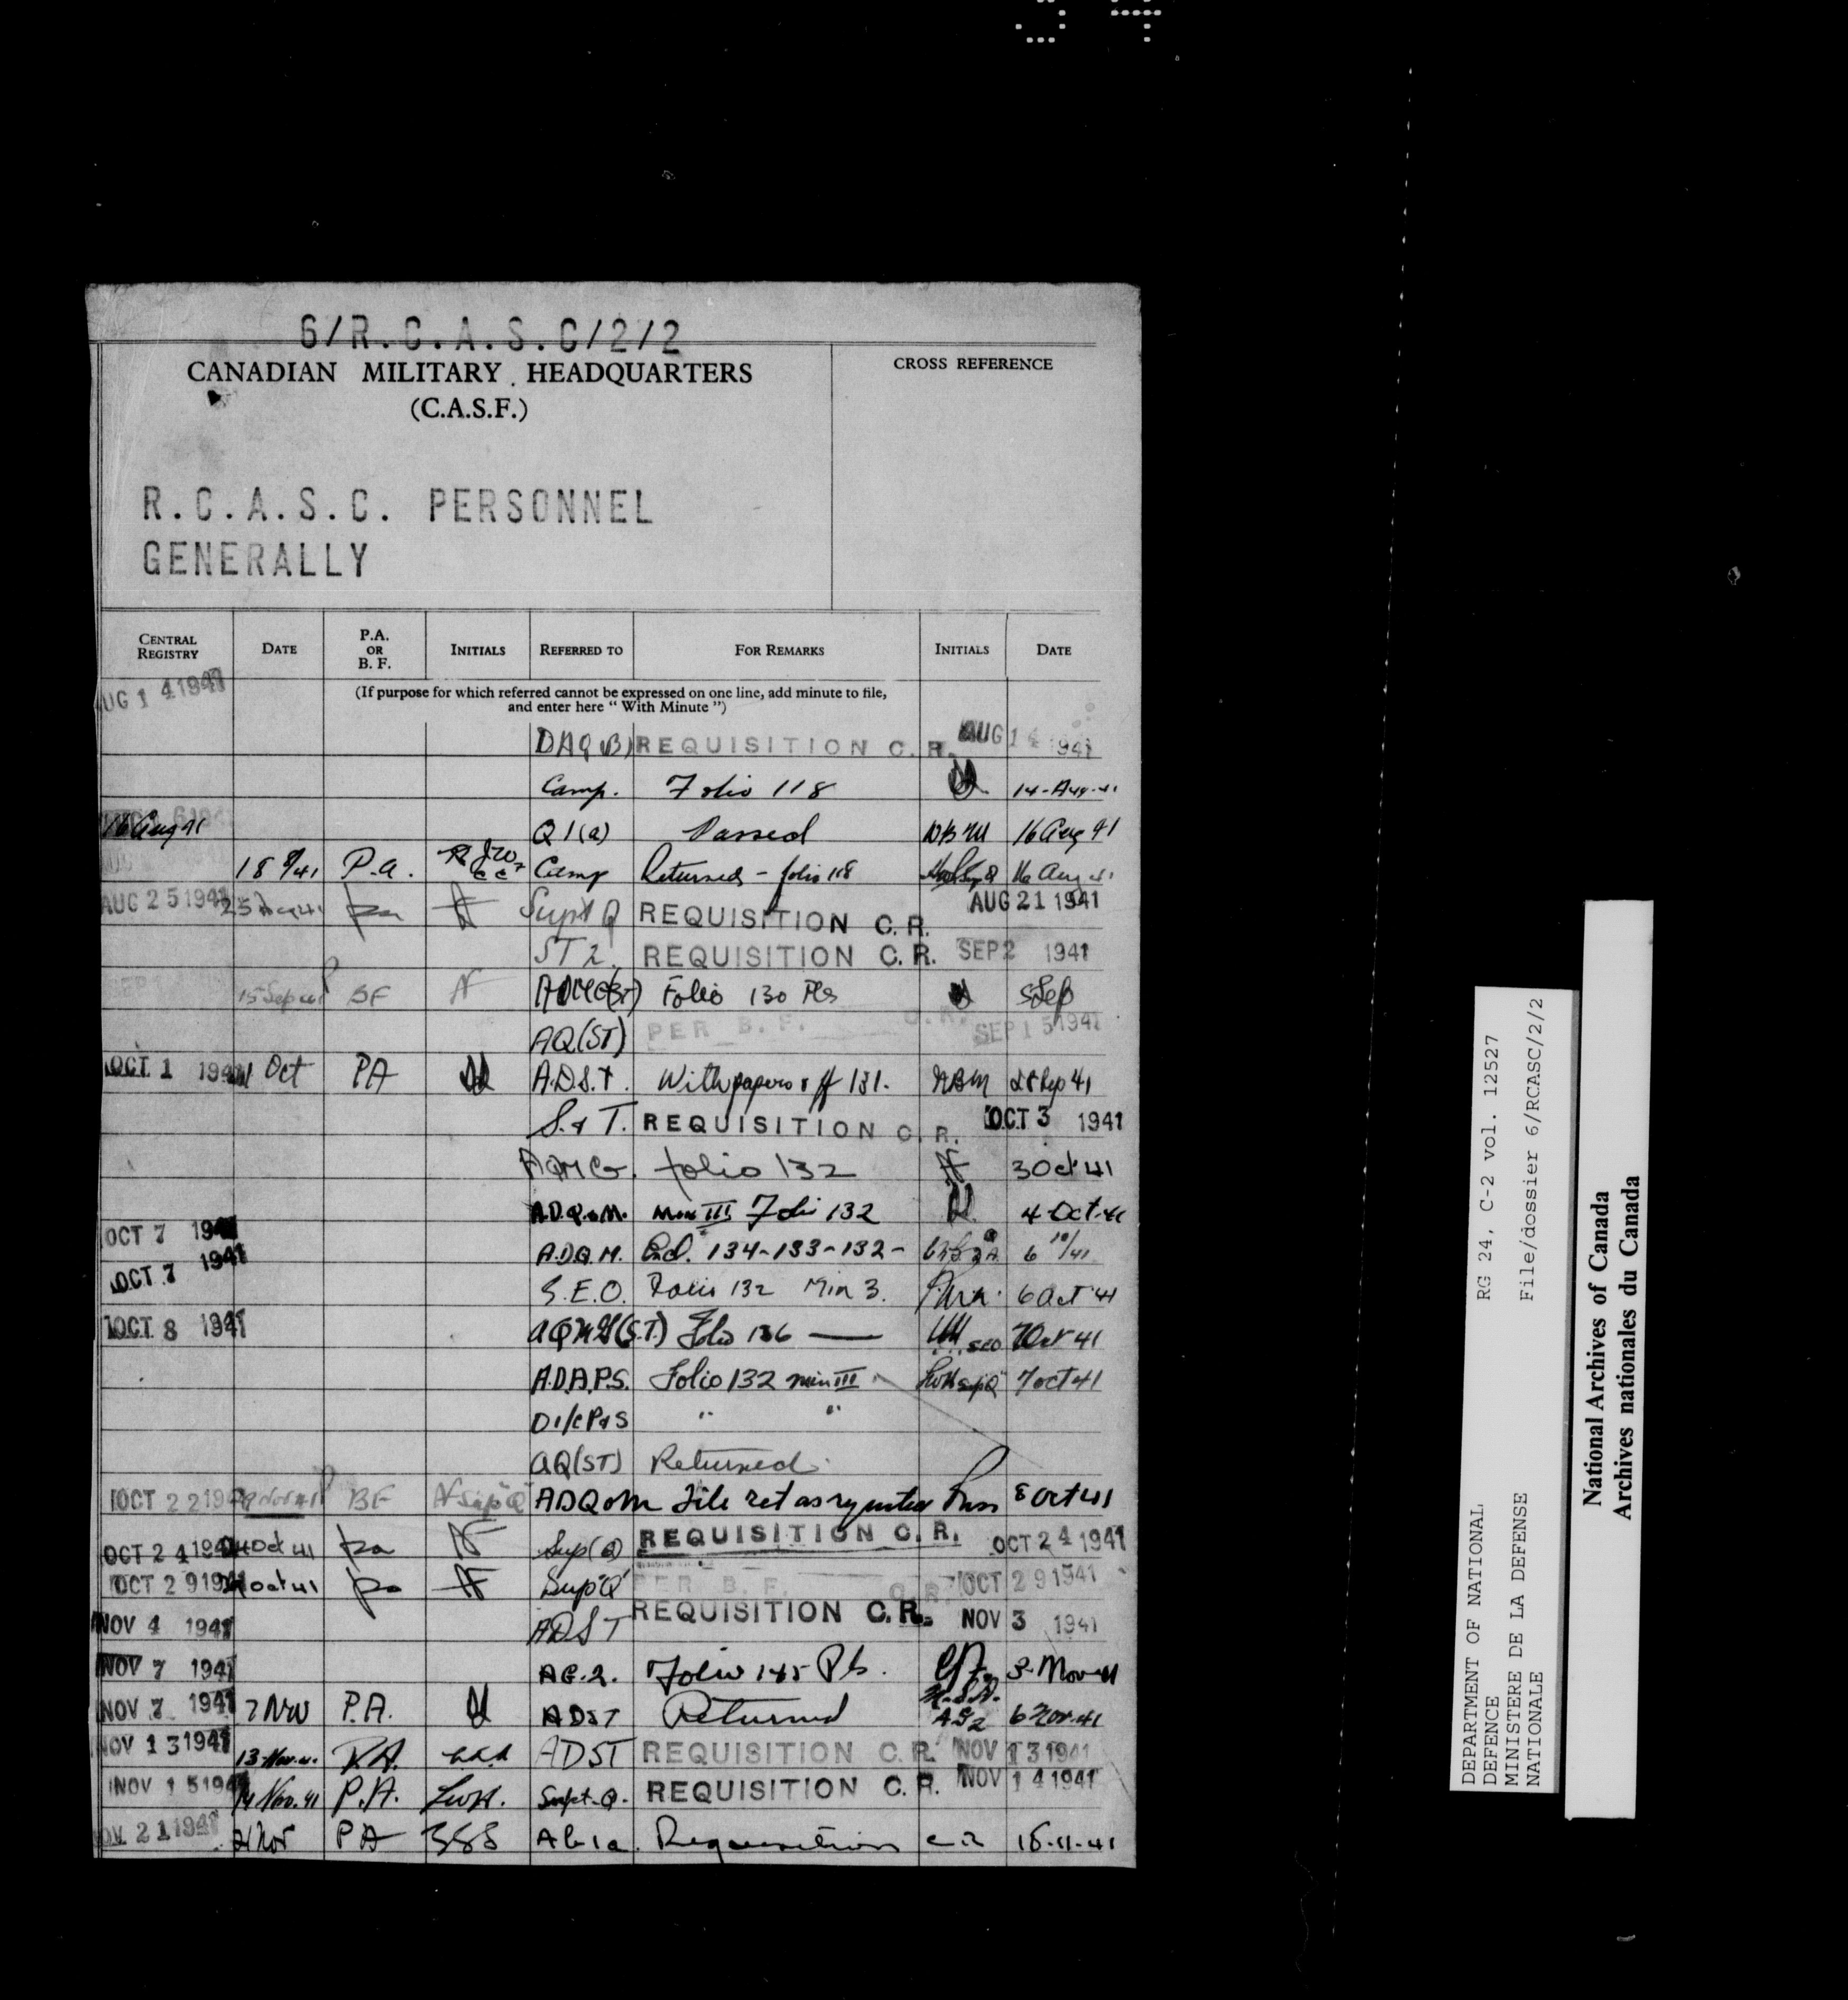 6/R.C.A.S.C/2/2
CANADIAN MILITARY HEADQUARTERS
(C.A.S.F.)
CROSS REFERENCE
R.C.A.S.C. PERSONNEL
GENERALLY
CENTRAL REGISTRY DATE P.A. OR B. F. INITIALS REFERRED TO FOR REMARKS INITIALS DATE
(If purpose for which referred cannot be expressed on one line, add minute to file,
and enter here “ With Minute ”)
UG 1 4 1941
REQUISITION C.R. AUG 14 1941
Camp. Folio 118 14-Aug-41
16 Aug 41 Q1(a) Passed 16 Aug 41
18 8/41 P.a. Camp Returned - folio 118 16 Aug 41
AUG 25 1941 25 Aug 41 pa Supt Q REQUISITION C.R. AUG 21 1941
ST 2. REQUISITION C.R. SEP 2 1941
15 Sep 41 BF Folio 130 Pls 5 Sep
AQ(ST) PER B.F. C.R. SEP 15 1941
OCT 1 1941 1 Oct PA A.D.S.T. With papers ff 131. NBM Sep 41
S. & T. REQUISITION C.R. OCT 3 1941
AQMG. folio 132 3 Oct 41
A.D.Q.M. Min III Folio 132 4 Oct. 41
OCT 7 1941
A.D.Q.M. 134-133-132- 6 10/41
OCT 7 1941
S.E.O. Folio 132 Min 3. 6 Oct 41
OCT 8 1941 AQMG(S.T.) Folio 136 SEO 7 Oct 41
A.D.A.P.S. Folio 132 min III 7 Oct 41
" "
AQ(ST) Returned.
OCT 22 194 BF ADQM File ret as requested 8 Oct 41
OCT 24 194 24 Oct 41 pa Sup(Q) REQUISITION C.R. OCT 24 1941
OCT 29 194 29 Oct 41 pa Sup"Q" PER B.F. C.R. OCT 29 1941
NOV 4 1941 ADST REQUISITION C.R. NOV 3 1941
NOV 7 1941 AG.2. Folio 145 Pls. 3-Nov-41
NOV 7 1941 7 Nov P.A. ADST Returned AG2 6 Nov. 41
NOV 13 1941 13-Nov-41 P.A. ADST REQUISITION C.R. NOV 13 1941
NOV 15 194 14 Nov. 41 P.A. Supt. Q. REQUISITION C.R. NOV 14 1941
OV. 21 1941 21 Nov PA Requisition CR 18-11-41
DEPARTMENT OF NATIONAL RG 24, C-2 vol. 12527
DEFENCE
MINISTERE DE LA DEFENSE File/dossier 6/RCASC/2/2
NATIONALE
National Archives of Canada
Archives nationales du Canada